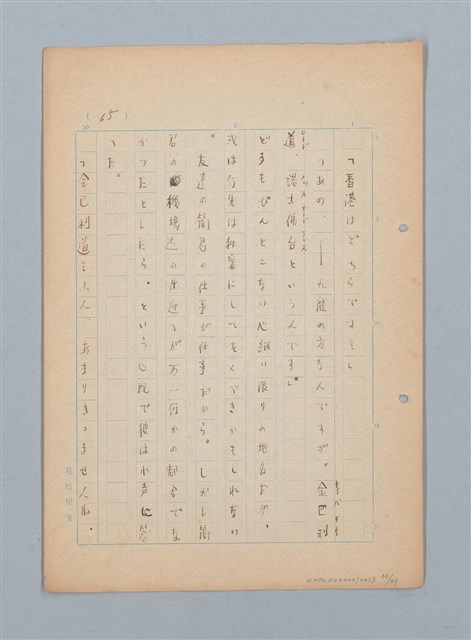 (65)
「香港はどちらですか」
「あの、——九龍の方なんですが。金巴利
道、諾士佛台というんです」
どうもぴんとこない心細い限りの地名だが、
或は行先は秘密にしておくべきかもしれない
。友達の簡君の仕事が仕事だから。しかし簡
君の機場迄の出迎えが万一何かの都合でな
かつたとしたら。という心配で彼は小声に答
えた。
「金巴利道ええと、あまりきゝませんね。